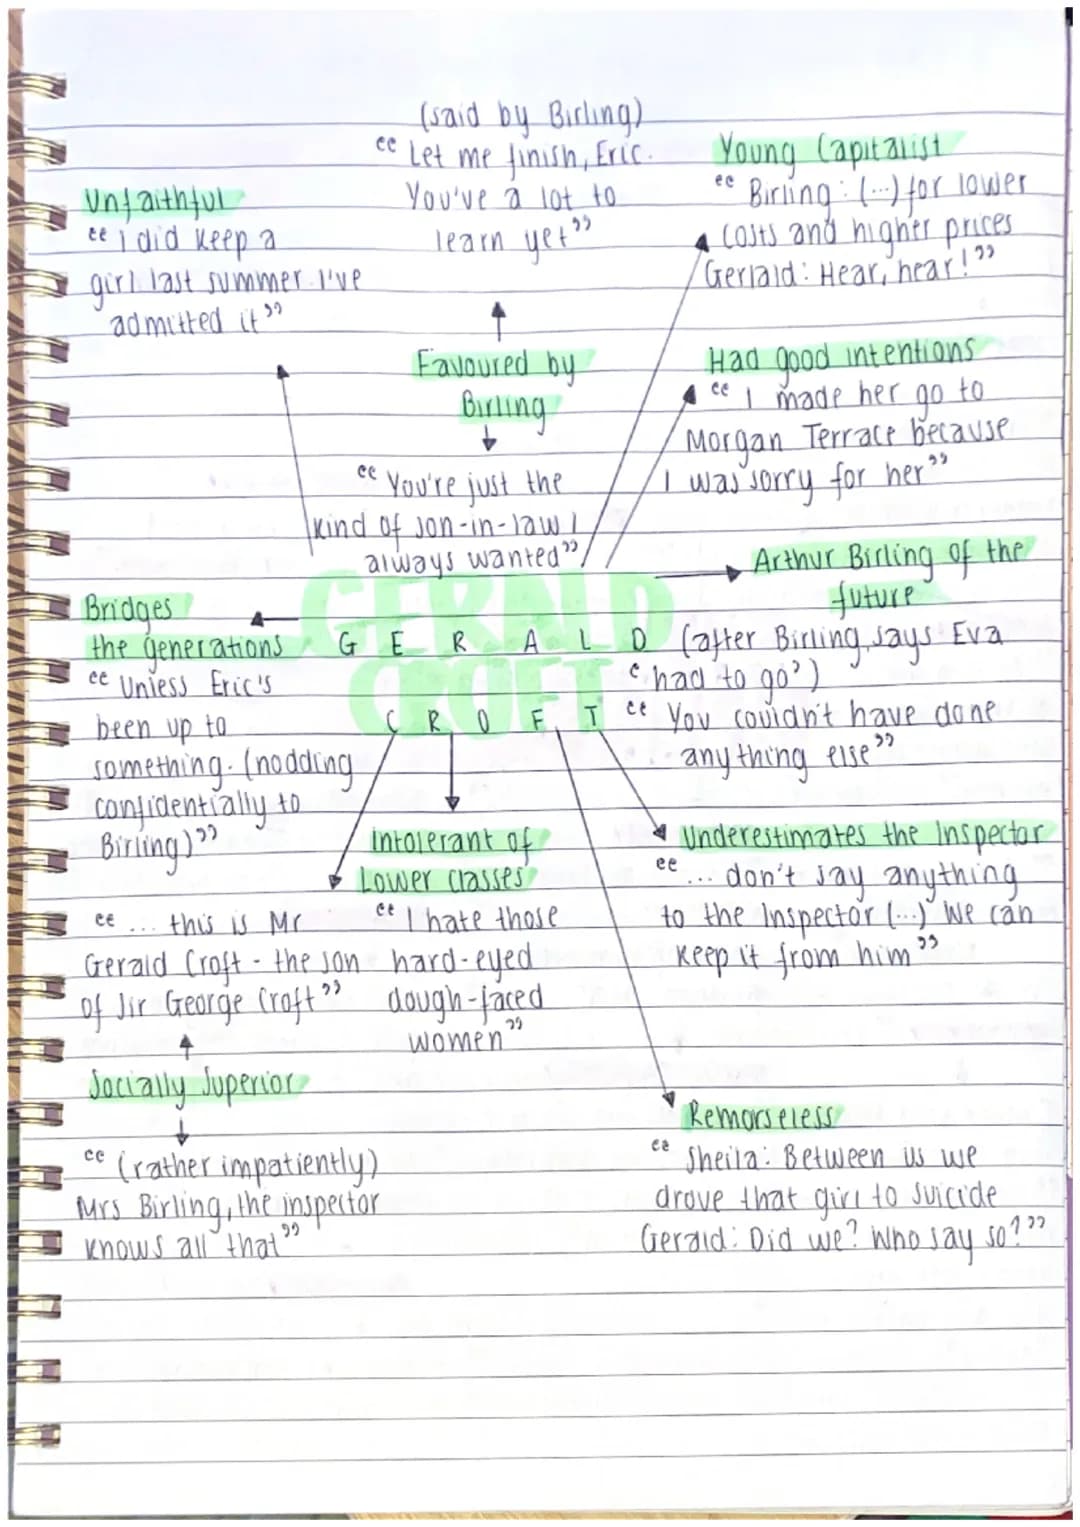 (said by Birling)
"Let me finish, Eric.
You've a lot to
learn yet"
Favoured by
Birling
"You're just the
kind of son-in-law I
always wanted"
Unfaithful
"I did keep a
girl last summer. I've
admitted it"
Young Capitalist
"Birling: (...) for lower
costs and higher prices
Gerlald: Hear, hear!"
Had good intentions
"I made her go to
Morgan Terrace because
I was sorry for her"
Arthur Birling of the
future
(after Birling says Eva
'had to go')
"You couldn't have done
anything else"
Bridges
the generations
"Unless Eric's
been up to
something. (nodding
confidentially to
Birling)"
GERALD
CROFT
G E R A L D
C R O F T
"... this is Mr
Gerald Croft - the son
of Sir George Croft"
Socially Superior
"(rather impatiently)
Mrs Birling, the inspector
knows all that"
Intolerant of
Lower classes
"I hate those
hard-eyed
dough-faced
women"
Underestimates the Inspector
"... don't say anything
to the Inspector (...) We can
keep it from him"
Remorseless
"Sheila: Between us we
drove that girl to suicide
Gerald: Did we? Who say so?"